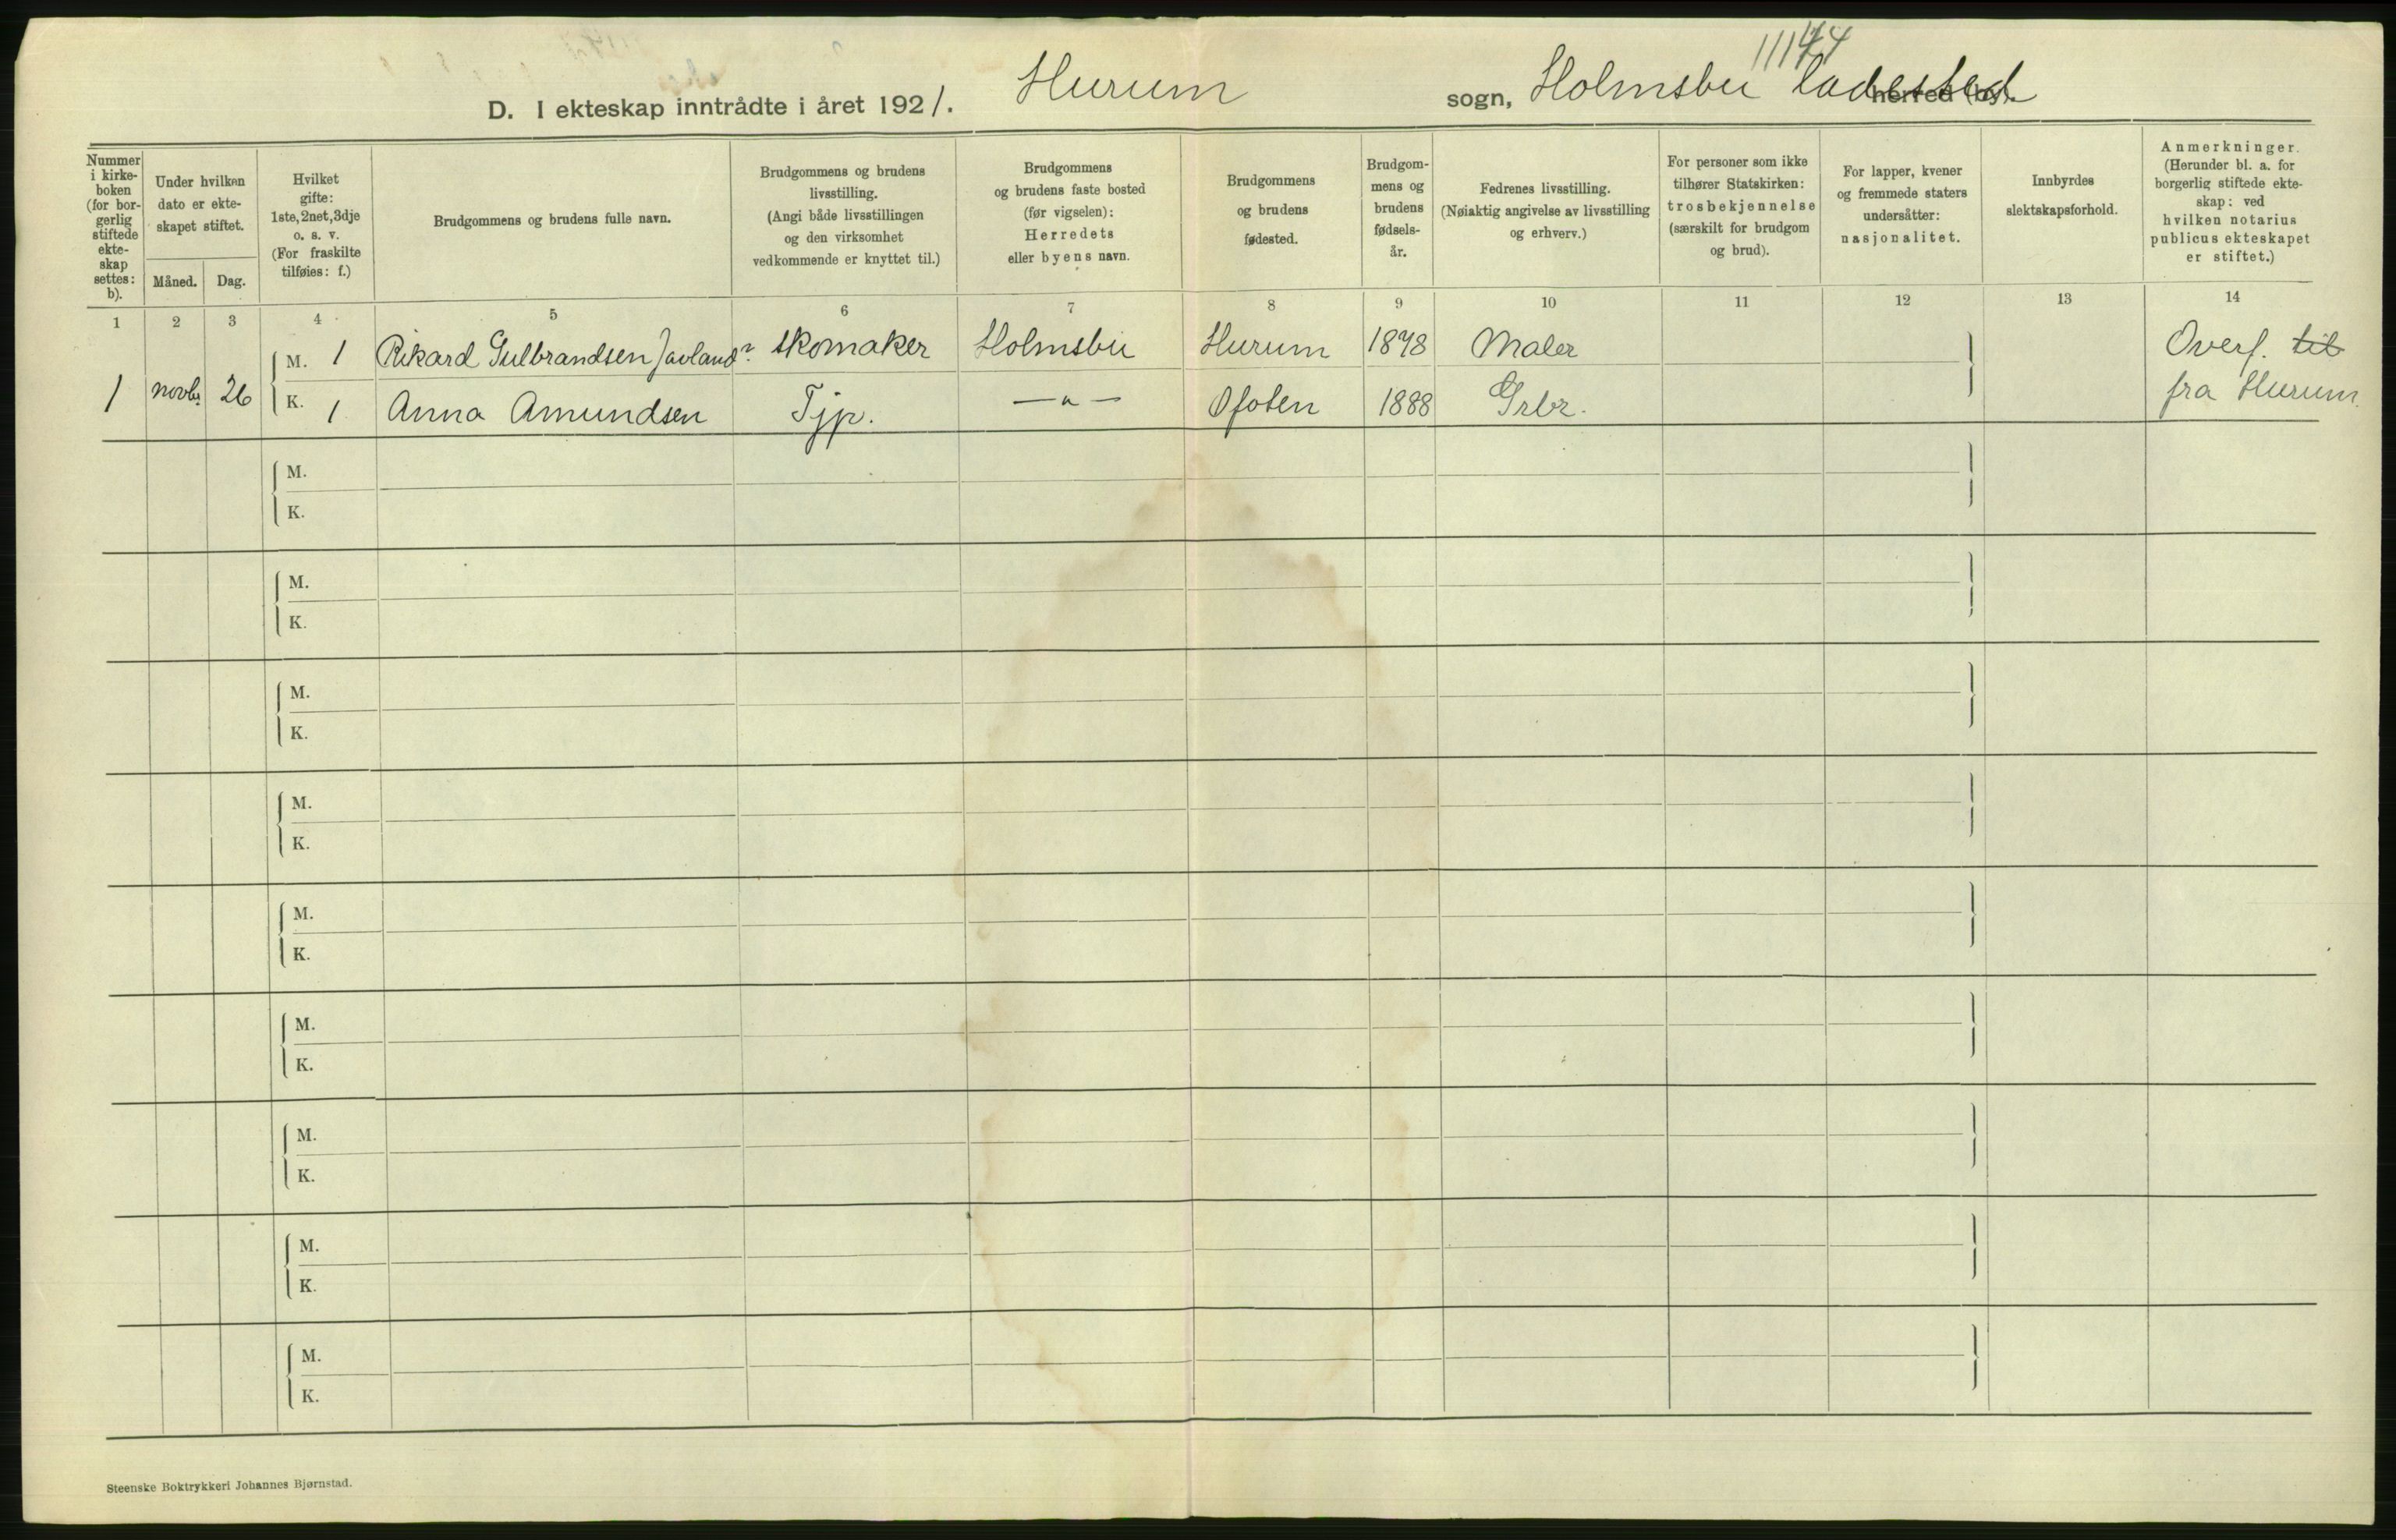 11144
D. I ekteskap inntrådte i året 1921. Hurum sogn, Holmsbu ladested herred (by).
Nummer i kirkeboken (for borgerlig stiftede ekteskap settes: b).
Under hvilken dato er ekteskapet stiftet.
Måned. Dag.
Hvilket gifte: 1ste, 2net, 3dje o. s. v. (For fraskilte tilføies: f.)
Brudgommens og brudens fulle navn.
Brudgommens og brudens livsstilling. (Angi både livsstillingen og den virksomhet vedkommende er knyttet til.)
Brudgommens og brudens faste bosted (før vigselen): Herredets eller byens navn.
Brudgommens og brudens fødested.
Brudgommens og brudens fødselsår.
Fedrenes livsstilling. (Nøiaktig angivelse av livsstilling og erhverv.)
For personer som ikke tilhører Statskirken: trosbekjennelse (særskilt for brudgom og brud).
For lapper, kvener og fremmede staters undersåtter: nasjonalitet.
Innbyrdes slektskapsforhold.
Anmerkninger. (Herunder bl. a. for borgerlig stiftede ekteskap: ved hvilken notarius publicus ekteskapet er stiftet.)
1 2 3 4 5 6 7 8 9 10 11 12 13 14
1 novbr. 26
M. 1 Rikard Gulbrandsen skomaker Holmsbu Hurum 1878 Maler Overf. til
K. 1 Anna Amundsen Tjp. —"— Ofoten 1888 Grbr. fra Hurum.
M.
K.
M.
K.
M.
K.
M.
K.
M.
K.
M.
K.
M.
K.
M.
K.
M.
K.
Steenske Boktrykkeri Johannes Bjørnstad.